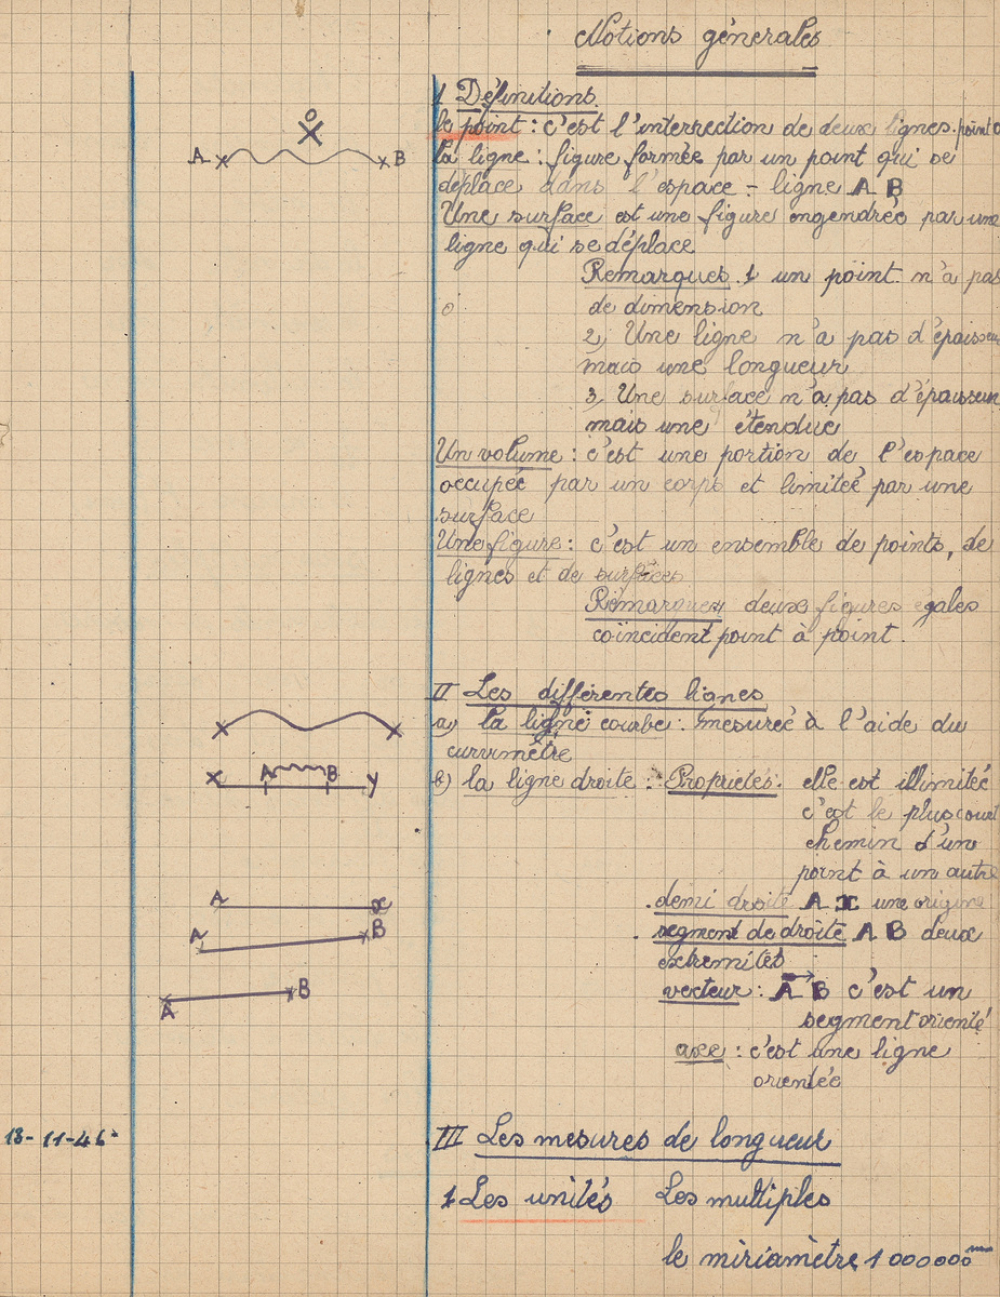 Notions générales
1 Définitions.
le point : c'est l'interrection de deux lignes. point O
O
A B
la ligne : figure formée par un point qui se
déplace dans l'espace - ligne A B
Une surface est une figure engendrée par une
ligne qui se déplace
Remarques. 1 un point n'a pas
de dimension
2) Une ligne n'a pas d'épaisseur
mais une longueur
3) Une surface n'a pas d'épaisseur
mais une étendue
Un volume : c'est une portion de l'espace
occupée par un corps et limitée par une
surface
Une figure : c'est un ensemble de points, de
lignes et de surfaces
Remarques, deux figures égales
coïncident point à point.
II Les différentes lignes
a) la ligne courbe : mesurée à l'aide du
curvimètre
x A B y
b) la ligne droite : Propriétés : elle est illimitée
c'est le plus court
chemin d'un
point à un autre
A x
. demi droite A x une origine
A B
. segment de droite A B deux
extremités
A B
vecteur : AB c'est un
segment orienté
axe : c'est une ligne
orientée
18-11-46
III Les mesures de longueur
1 Les unités Les multiples
le miriamètre 1 000000 mm